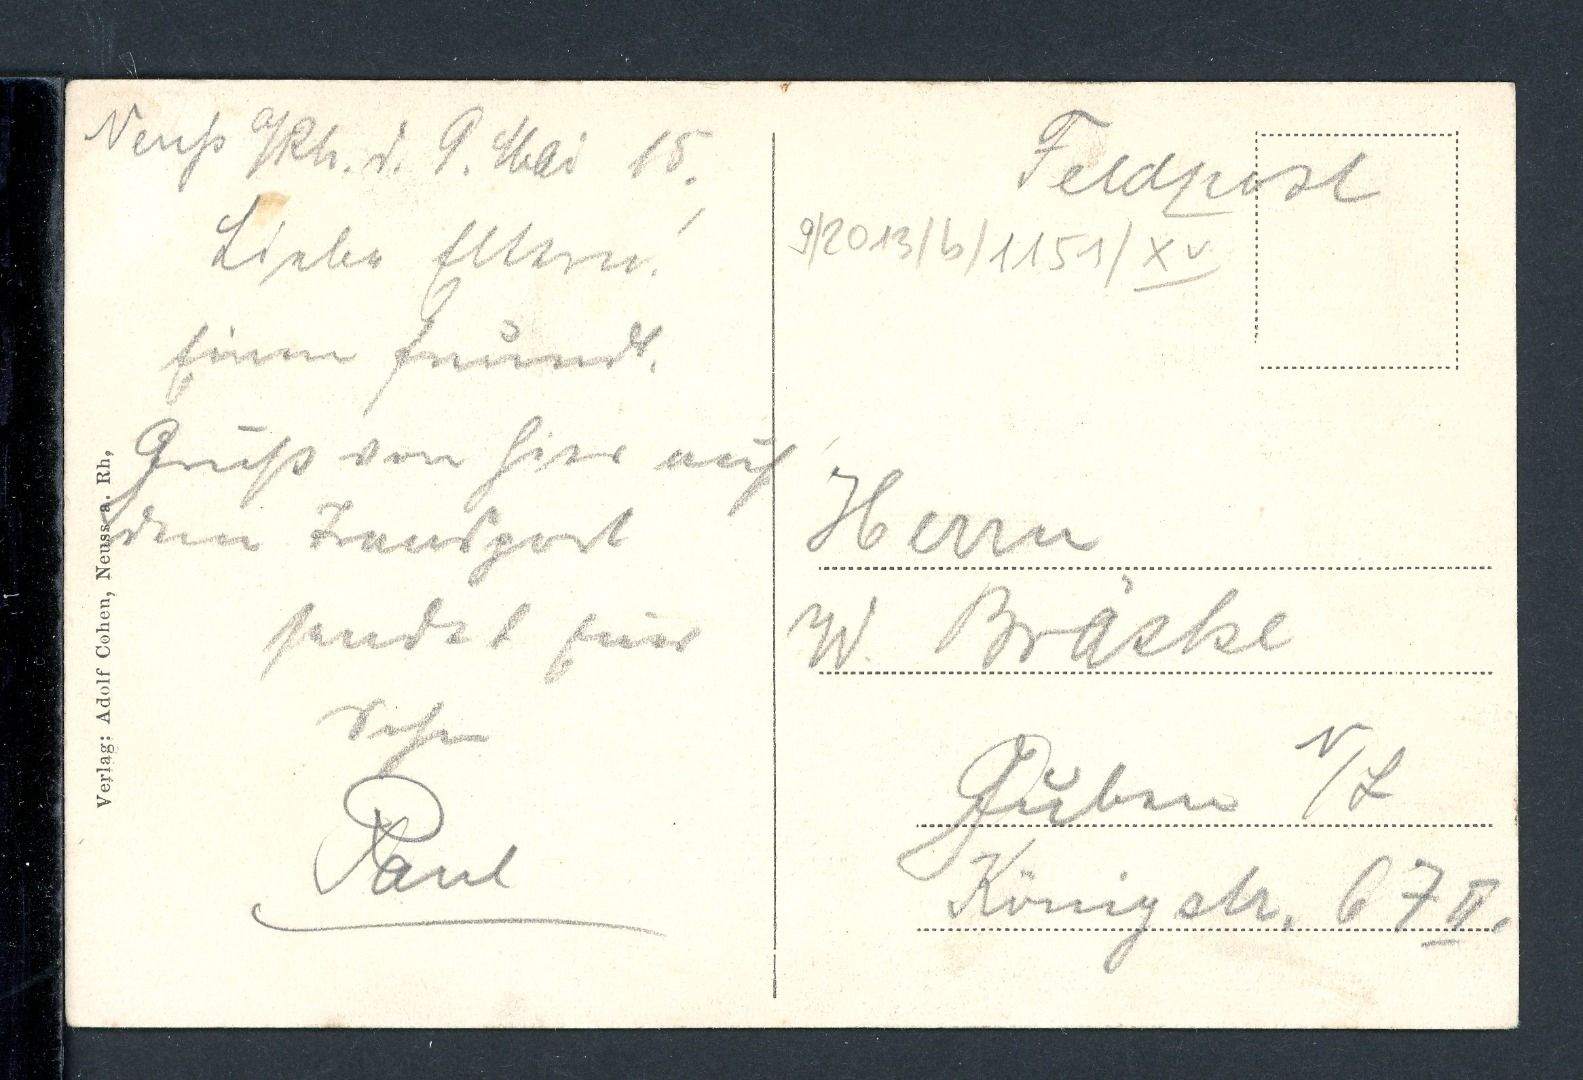 Neuß a/Rh. d. 9. Mai 15.
Liebe Eltern!
Einen freundl.
Gruß von hier auf
dem Transport
sendet Euer
Sohn
Paul
Verlag: Adolf Cohen, Neuss a. Rh,
Feldpost
9/2013/b/1151/XV
Herrn
W. Bräske
Guben N/L
Königstr. 67 II.